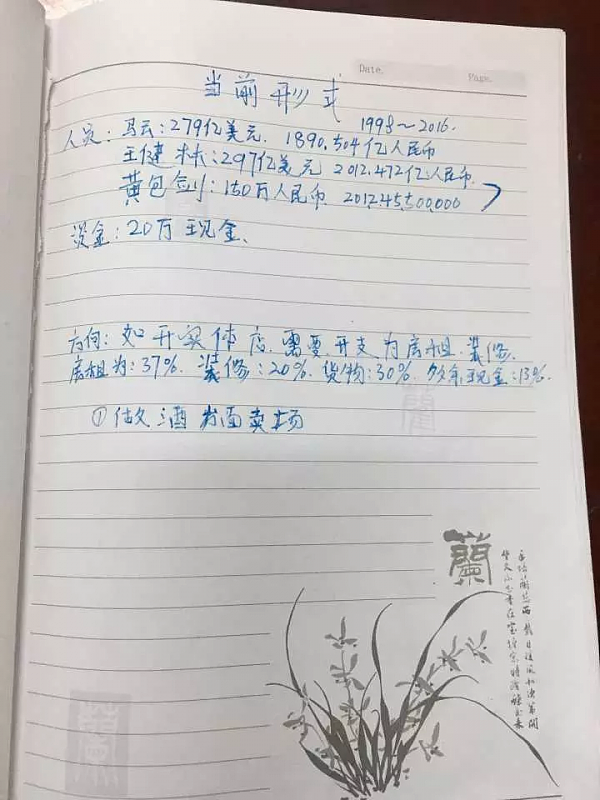 Date.
Page.
当前形式
1998～2016.
人员：马云：279亿美元. 1890.504亿人民币
王健林：297亿美元 2012.472亿人民币.
黄包剑：150万人民币 201245500000
资金：20万现金.
方向：如开实体店.需要开支为房租.装修.
房租为：37%. 装修：20%. 货物：30% 多余现金：13%.
①做文酒方面卖场
蘭